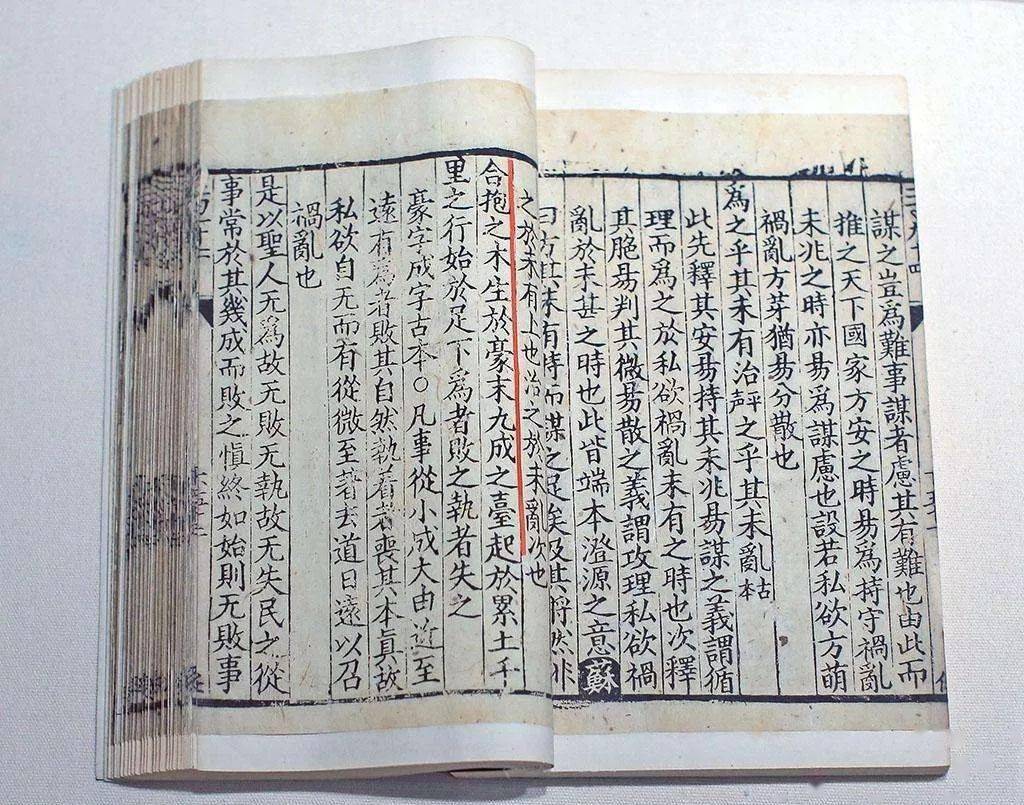 謀之豈爲難事謀者慮其有難也由此而
推之天下國家方安之時易爲持守禍亂
未兆之時亦易爲謀慮也設若私欲方萌
禍亂方芽猶易分散也
爲之乎其未有治乎之乎其未亂古本
此先釋其安易持其未兆易謀之義謂循
理而爲之於私欲禍亂未有之時也次釋
其脆易判其微易散之義謂攻理私欲禍
亂於未甚之時也此皆端本澄源之意蘇
曰方其未有持而謀之足矣及其將然非
之於未有上也治之於未亂次也
合抱之木生於豪末九成之臺起於累土千
里之行始於足下爲者敗之執者失之
豪字成字古本○凡事從小成大由近至
遠有爲者敗其自然執着者喪其本眞故
私欲自无而有從微至著去道日遠以召
禍亂也
是以聖人无爲故无敗无執故无失民之從
事常於其幾成而敗之愼終如始則无敗事